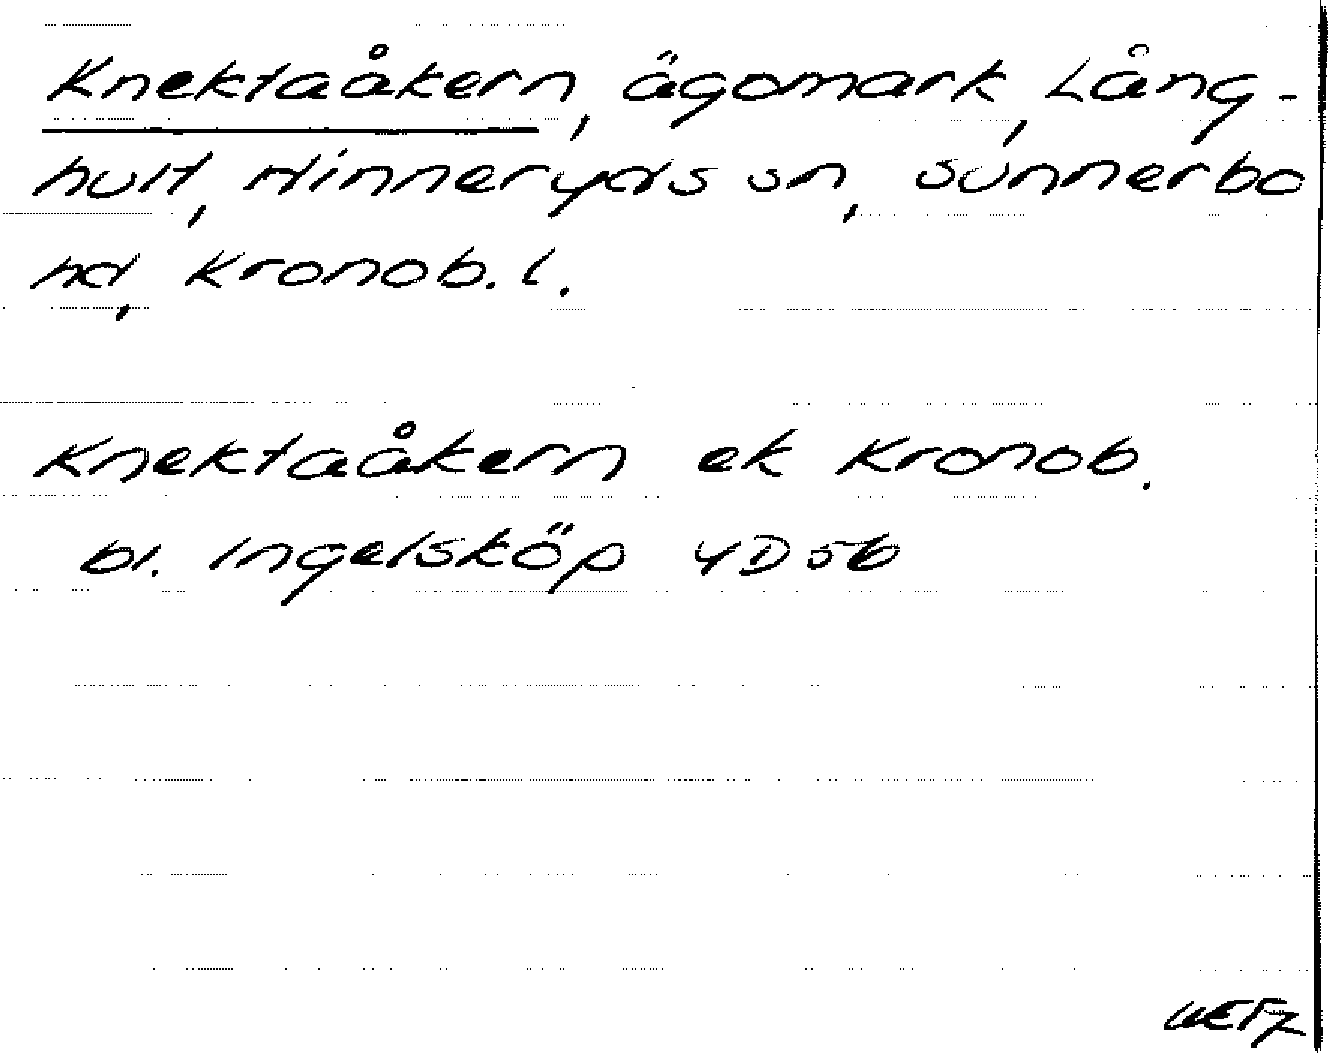 Knektaåkern, ägomark, Lång-
hult, Hinneryds sn, Sunnerbo
hd, Kronob. l.
Knektaåkern ek Kronob.
bl. Ingelsköp 4D5b